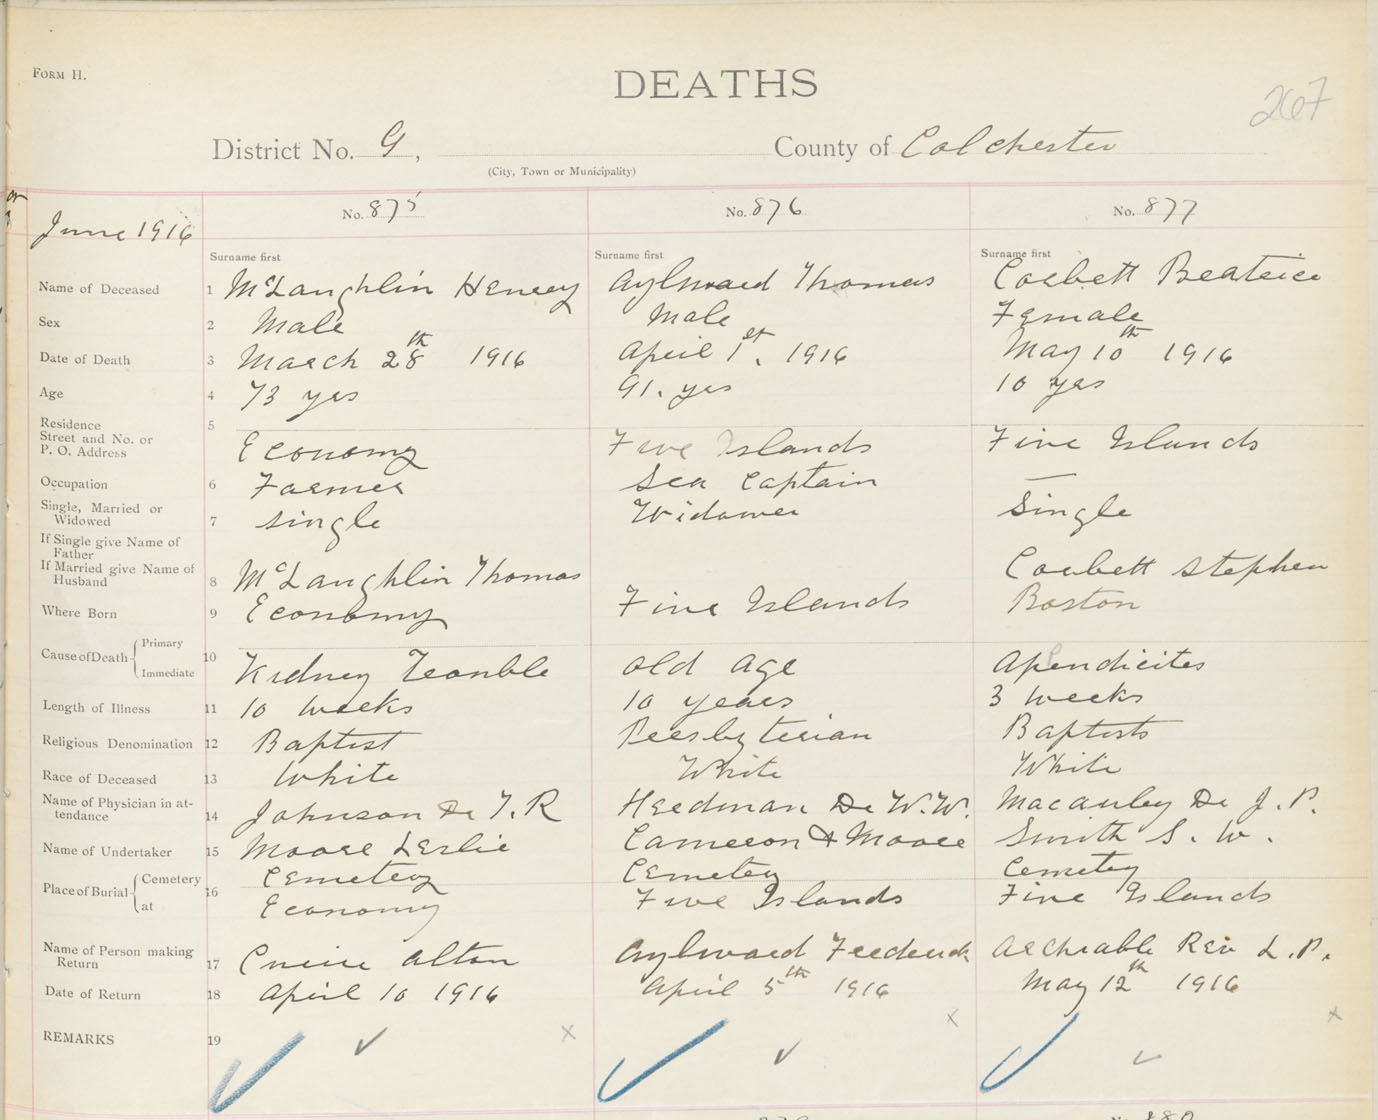 FORM H.
DEATHS
267
District No. 9, County of Colchester
(City, Town or Municipality)
June 1916
No. 875 No. 876 No. 877
Surname first Surname first Surname first
Name of Deceased 1 McLaughlin Henery Aylward Thomas Corbett Beatrice
Sex 2 Male Male Female
Date of Death 3 March 28th 1916 April 1st. 1916 May 10th 1916
Age 4 73 yrs 91. yrs 10 yrs
Residence
Street and No. or
P. O. Address 5 Economy Five Islands Five Islands
Occupation 6 Farmer Sea Captain —
Single, Married or
Widowed 7 single Widower Single
If Single give Name of
Father
If Married give Name of
Husband 8 McLaughlin Thomas Corbett Stephen
Where Born 9 Economy Five Islands Boston
Cause of Death Primary
Immediate 10 Kidney Trouble Old Age Apendicites
Length of Illness 11 10 weeks 10 years 3 weeks
Religious Denomination 12 Baptist Presbyterian Baptists
Race of Deceased 13 White White White
Name of Physician in at-
tendance 14 Johnson Dr T. R Hredman Dr W. W. Macauley Dr J. P.
Name of Undertaker 15 Moore Leslie Cameron & Moore Smith S. W.
Place of Burial Cemetery 16 Cemetery Cemetery Cemetery
at Economy Five Islands Five Islands
Name of Person making
Return 17 Alton Aylward Frederick Archiable Rev L. P.
Date of Return 18 April 10 1916 April 5th 1916 May 12th 1916
REMARKS 19 ✓ ✓ x ✓ ✓ x ✓ ✓ x
No. 880